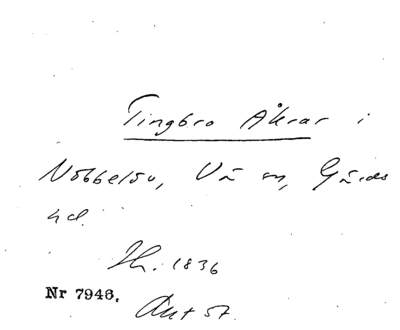 Tingbro Åkrar i
Nöbbelöv, Vä sn, Gärds
hd.
Jh. 1836
Nr 7946.
Akt 57.